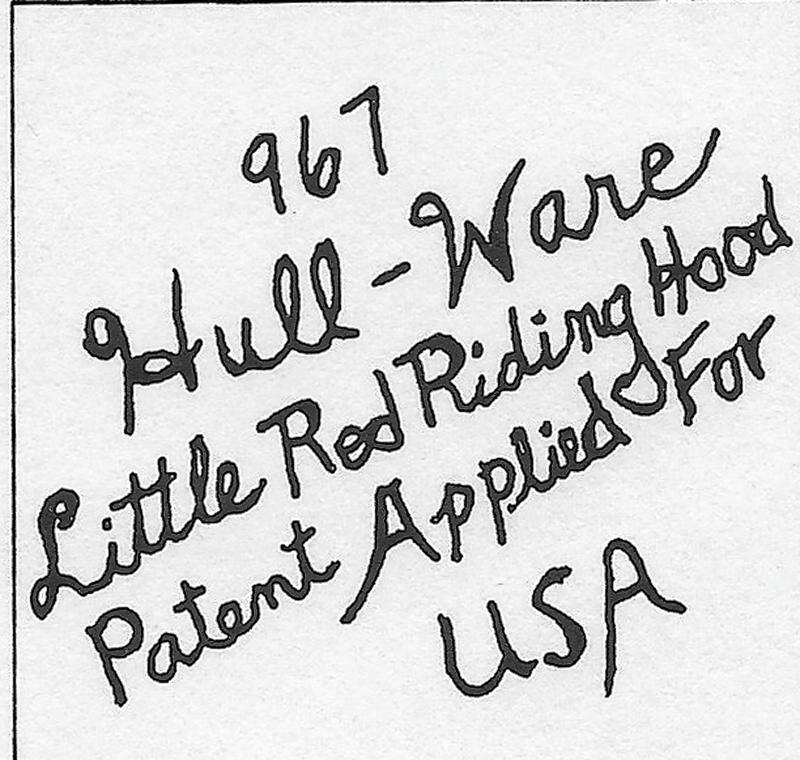 967
Hull-Ware
Little Red Riding Hood
Patent Applied For
USA